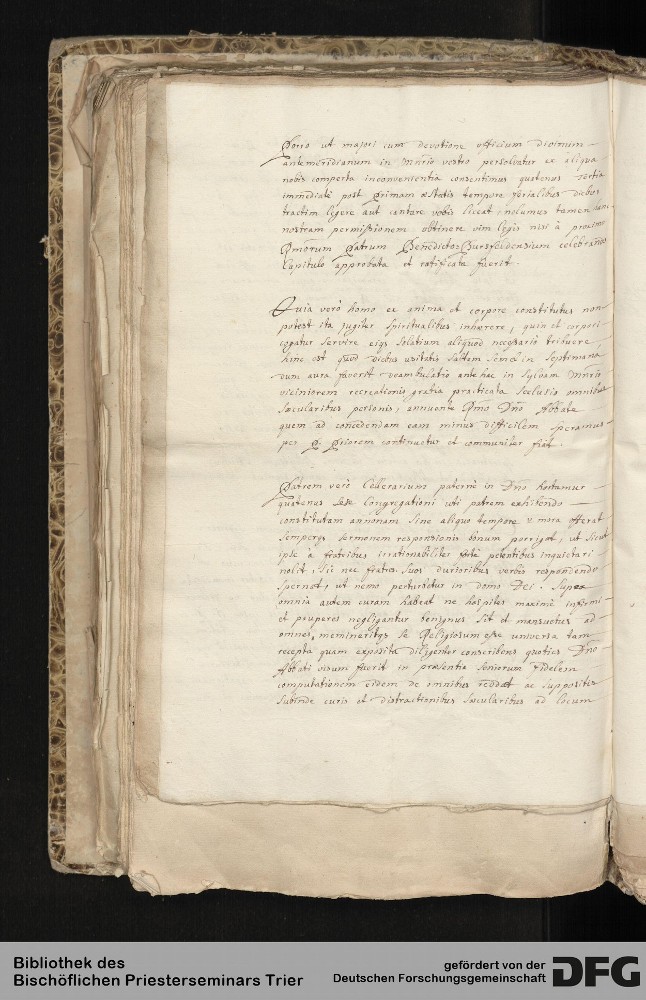 Porro ut majori cum devotione officium divinum
antemeridianum in Mnrio vestro persolvatur ex aliqua
nobis comperta inconvenientia consentimus quatenus tertia
immediatè post Primam æstatis tempore ferialibus diebus
tractim legere aut cantare vobis liceat, nolumus tamen hanc
nostram permissionem obtinere vim legis nisi à proximo
Rmorum Patrum Benedicto-Bursfeldensium celebrando
Capitulo approbata et ratificata fuerit.
Quia verò homo ex anima et corpore constitutus non
potest ita jugiter spiritualibus inhærere, quin et corpori
cogatur servire eiqs solatium aliquod necessario tribuere
hinc est quod diebus usitatis saltem semel in septimana
dum aura faverit deambulatio antehac in sylvam Mnrio
viciniorem recreationis gratia practicata seclusis omnibus
sæcularibus personis, annuente Rmo Dno Abbate
quem ad concedendam eam minus difficilem speramus
per P. Priorem continuetur et communiter fiat.
Patrem verò Cellerarium paternè in Dno hortamur
quatenus sese Congregationi uti patrem exhibendo
constitutam annonam sine aliquo tempore v mora offerat
semperqs sermonem responsionis bonum porrigat, ut sicut
ipse à fratribus irrationabiliter petentibus inquietari
nolit, sic nec fratres suos durioribus verbis respondendo
spernat, ut nemo perturbetur in domo Dei. Super
omnia autem curam habeat ne hospites maximè infirmi
et pauperes negligantur benignus sit et mansuetus ad
omnes, memineritqs se Religiosum esse universa tam
recepta quam exposita diligenter conscribens quoties Dno
Abbati visum fuerit in præsentia seniorum fidelem
computationem eidem de omnibus reddat ac suppositis
subinde curis et distractionibus sæcularibus ad locum
Bibliothek des
Bischöflichen Priesterseminars Trier
gefördert von der
Deutschen Forschungsgemeinschaft
DFG